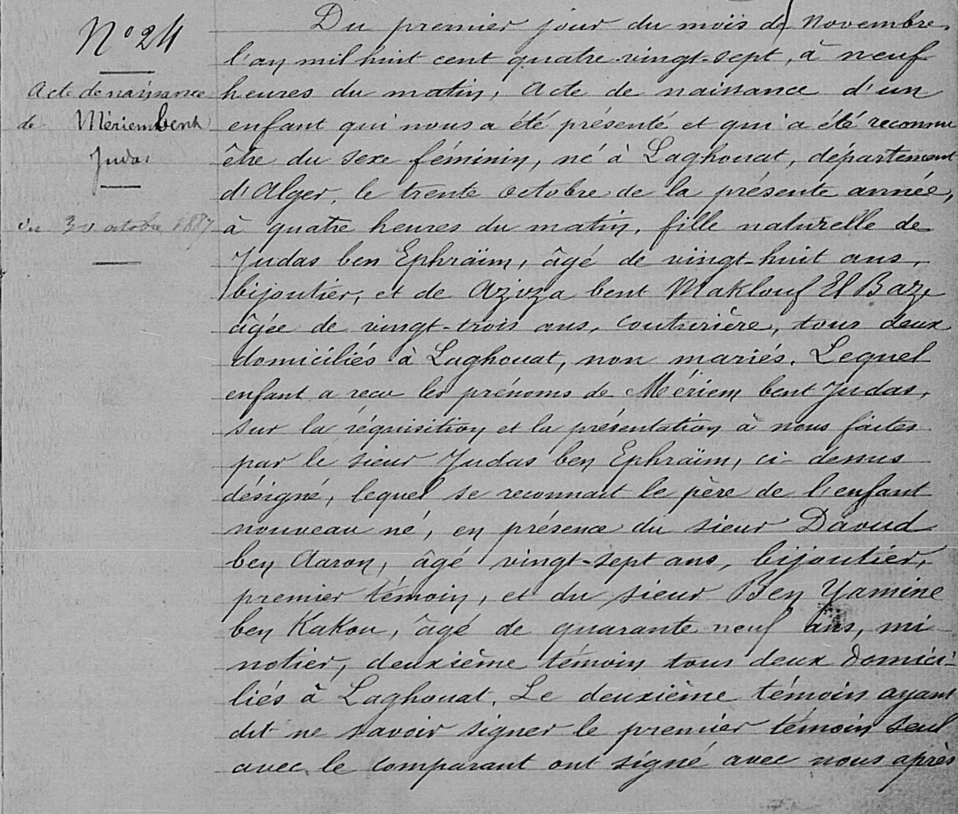 N° 24
Acte de naissance
de Mériem bent
Judas
du 30 octobre 1887
Du premier jour du mois de Novembre
l'an mil huit cent quatre vingt-sept, à neuf
heures du matin, Acte de naissance d'un
enfant qui nous a été présenté et qui a été reconnu
être du sexe féminin, né à Laghouat, département
d'Alger, le trente octobre de la présente année,
à quatre heures du matin, fille naturelle de
Judas ben Ephraïm, âgé de vingt-huit ans,
bijoutier, et de Aziza bent Maklouf El Baze
âgée de vingt-trois ans, couturière, tous deux
domiciliés à Laghouat, non mariés. Lequel
enfant a recu les prénoms de Mériem bent Judas,
sur la réquisition et la présentation à nous faites
par le sieur Judas ben Ephraïm, ci-dessus
désigné, lequel se reconnait le père de l'enfant
nouveau né, en présence du sieur Daoud
ben Aaron, âgé vingt-sept ans, bijoutier,
premier témoin, et du sieur Ben Yamine
ben Kakou, âgé de quarante neuf ans, mi-
notier, deuxième témoin tous deux domici-
liés à Laghouat. Le deuxième témoin ayant
dit ne savoir signer le premier témoin seul
avec le comparant ont signé avec nous après